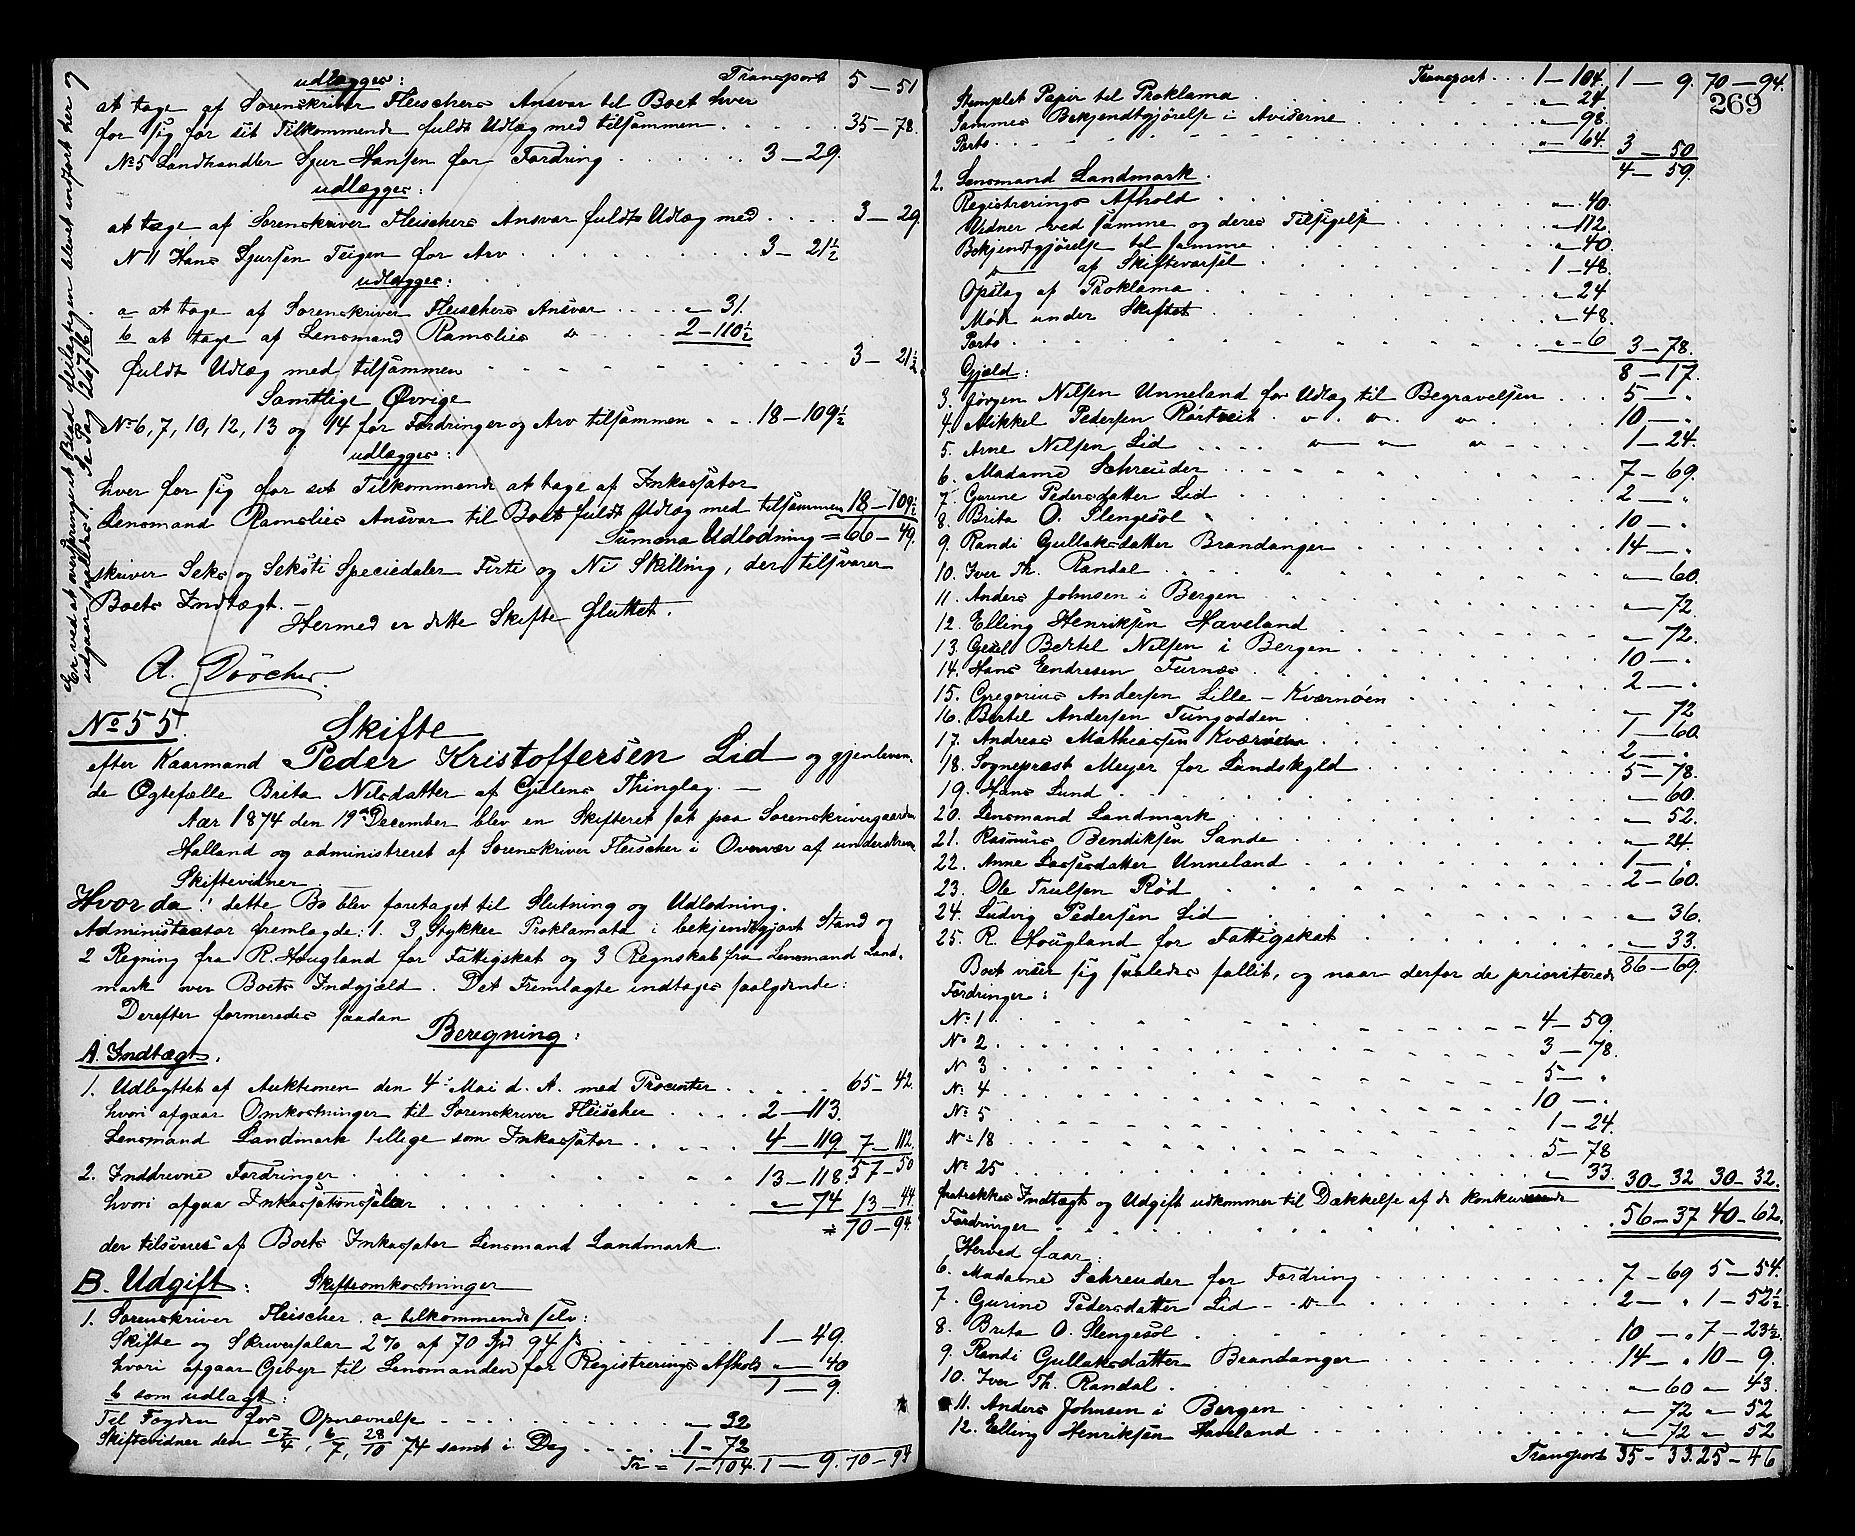 Er ved at overspringet Blad feilagtigen blevet indført her og
udgaar følles. Se Pag 267/16
Transport 5 – 51
udlægges:
at tage af Sorenskriver Fleischers Ansvar til Boet hver
for sig for sit Tilkommende fuldt Udlæg med tilsammen . . . . 35 – 78.
No 5 Landhandler Sjur Hansen for Fordring . . . . 3 – 29.
udlægges:
at tage af Sorenskriver Fleischers Ansvar fuldt Udlæg med . . . . 3 – 29.
N 11 Hans Sjursen Teigen for Arv . . . . 3 – 21½
udlægges:
a at tage af Sorenskriver Fleischers Ansvar . . . . „ – 31.
b at tage af Lensmand Ramslies do . . . 2 – 110½
fuldt Udlæg med tilsammen . . . . 3 – 21½
Samtlige Øvrige
No 6, 7, 10, 12, 13 og 14 for Fordringer og Arv tilsammen . . . 18 – 109½
udlægges:
hver for sig for sit Tilkommende at tage af Inkassator
Lensmand Ramslies Ansvar til Boet fuldt Udlæg med tilsammen 18 – 109½
Summa Udlodning = 66 – 49.
skriver Seks og Seksti Speciedaler Firti og Ni Skilling, der tilsvarer
Boets Indtægt. –
Hermed er dette Skifte sluttet.
A. Döscher.
No 55. Skifte
efter Kaarmand Peder Kristoffersen Lid og gjenleven-
de Ægtefælle Brita Nilsdatter af Gulens Thinglag. –
Aar 1874 den 19de December blev en Skifteret sat paa Sorenskrivergaarden
Halland og administreret af Sorenskriver Fleischer i Overvær af underskrevne
Skiftevidner
Hvor da: dette Bo blev foretaget til Slutning og Udlodning.
Administrator fremlagde: 1. 3 Stykker Proklamata i bekjendtgjort Stand og
2 Regning fra R. Hougland for Fattigskat og 3 Regnskab fra Lensmand Land-
mark over Boets Indgjæld. Det Fremlagte indtages saalydende:
Derefter formeredes saadan
Beregning:
A. Indtægt.
1. Udbyttet af Auktionen den 4de Mai d. A. med Procenter . . . . 65 – 42.
hvori afgaar Omkostninger til Sorenskriver Fleischer . . . . 2 – 113.
Lensmand Landmark tillige som Inkassator . . . . 4 – 119 7 – 112.
57 – 50
2. Inddrevne Fordringer . . . . 13 – 118.
hvori afgaar Inkassationssalær . . . . „ – 74 13 – 44
= 70 – 94
der tilsvares af Boets Inkassator Lensmand Landmark.
B. Udgift: Skifteomkostninger
1. Sorenskriver Fleischer. a tilkommende selv:
Skifte og Skriversalær 2% af 70 Spd 94 ß . . . . 1 – 49.
hvori afgaar Gebyr til Lensmanden for Registrerings Afhold „ – 40
1 – 9.
b som udlagt:
Til Fogden for Opnævnelse . . . . „ – 32
Skiftevidner den 27/4, 6/7, 28/10 74 samt i Dag . . . . 1 – 72
Tr = 1 – 104. 1 – 9. 70 – 94
Transport . . . 1 – 104. 1 – 9. 70 – 94.
269
Stemplet Papir til Proklama . . . . „ – 24.
Sammes Bekjendtgjørelse i Aviserne . . . . „ – 98.
Porto . . . . „ – 64. 3 – 50
4 – 59.
2. Lensmand Landmark.
Registrerings Afhold . . . . „ – 40.
Vidner ved samme og deres Tilsigelse . . . . „ – 112.
Bekjendtgjørelse til samme . . . . „ – 40.
do af Skiftevarsel . . . . 1 – 48.
Opslag af Proklama . . . . „ – 24
Møde under Skiftet . . . . „ – 48.
Porto . . . . „ – 6 3 – 78.
8 – 17.
Gjæld:
3. Jørgen Nilsen Unneland for Udlæg til Begravelsen . . . 5 – „
4. Mikkel Pedersen Rørtveit „ „ „ . . . 10 – „
5. Arne Nilsen Lid . . . . „ „ „ . . . 1 – 24.
6. Madame Schreuder . . . . 7 – 69.
7. Gurine Pedersdatter Lid . . . . 2 – „
8. Brita O. Slengesol . . . . 10 – „
9. Randi Gullaksdatter Brandanger . . . . 14 – „
10. Iver Th. Randal . . . . „ – 60.
11. Anders Johnsen i Bergen . . . . „ – 72.
12. Elling Henriksen Haveland . . . . „ – 72.
13. Gesel Bertel Nilsen i Bergen . . . . 10 – „
14. Hans Endresen Furnæs . . . . 2 – „
15. Gregorius Andersen Lille-Kværnøen . . . . „ – 72
16. Bertil Andersen Tungodden . . . . 1 – 60.
17. Andreas Mathiassen Kværnøen . . . . 2 – „
18. Sogneprest Meyer for Landskyld . . . . 5 – 78.
19. Hans Lund . . . . „ – 60.
20. Lensmand Landmark . . . . „ – 52.
21. Rasmus Bendiksen Sande . . . . „ – 24.
22. Anne Lassesdatter Unneland . . . . 1 – „
23. Ole Trulsen Rød . . . . 2 – 60.
24. Ludvig Pedersen Lid . . . . „ – 36.
25. R. Hougland for Fattigskat . . . . „ – 33.
86 – 69.
Boet viser sig saaledes fallit, og naar derfor de prioriterede
Fordringer:
No 1 . . . . 4 – 59.
No 2 . . . . 3 – 78.
N 3 . . . . 5 – „
No 4 . . . . 10 – „
No 5 . . . . 1 – 24.
No 18 . . . . 5 – 78
No 25 . . . . „ – 33. 30 – 32 30 – 32.
fratrækkes Indtægt og Udgift udkommer til Dækkelse af de konkurrerende
Fordringer . . . . 56 – 37 40 – 62.
Herved faar:
6. Madame Schreuder for Fordring . . . . 7 – 69 5 – 54.
7. Gurine Pedersdatter Lid – do – . . . . 2 – „ 1 – 52½
8. Brita O. Slengesol . . . . 10 – „ 7 – 23½
9. Randi Gullaksdatter Brandanger . . . . 14 – „ 10 – 9.
10. Iver Th. Randal . . . . „ – 60 „ – 43.
11. Anders Johnsen i Bergen . . . . „ – 72 „ – 52
12. Elling Henriksen Haveland . . . . „ – 72 „ – 52
Transport 35 – 33. 25 – 46